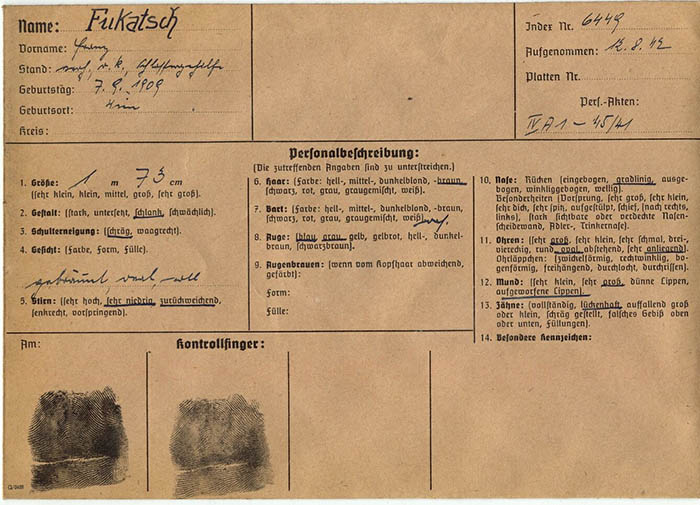 Name: Fukatsch
Vorname: Franz
Stand: verh., r.k., Schlossergehilfe
Geburtstag: 7. 9. 1909
Geburtsort: Wien
Kreis:
Index Nr. 6449
Aufgenommen: 12. 8. 42
Platten Nr.
Pers.-Akten:
IV A 1 – 45/41
Personalbeschreibung:
(Die zutreffenden Angaben sind zu unterstreichen.)
1. Größe: 1 m 73 cm
(sehr klein, klein, mittel, groß, sehr groß).
2. Gestalt: (stark, untersetzt, schlank, schwächlich).
3. Schulterneigung: (schräg, waagrecht).
4. Gesicht: (Farbe, Form, Fülle).
gebräunt, oval, voll
5. Stirn: (sehr hoch, sehr niedrig, zurückweichend,
senkrecht, vorspringend).
6. Haar: (Farbe: hell-, mittel-, dunkelblond, -braun,
schwarz, rot, grau, graugemischt, weiß).
7. Bart: (Farbe: hell-, mittel-, dunkelblond, -braun,
schwarz, rot, grau, graumeliert, weiß).
8. Auge: (blau, grau, gelb, gelbrot, hell-, dunkel-
braun, schwarzbraun).
9. Augenbrauen: (wenn vom Kopfhaar abweichend,
gefärbt):
Form:
Fülle:
10. Nase: Rücken (eingebogen, gradlinig, ausge-
bogen, winkliggebogen, wellig).
Besonderheiten (Vorsprung, sehr groß, sehr klein,
sehr dick, sehr spitz, aufgestülpt, schief, [nach rechts,
links], stark sichtbare oder verdeckte Nasen-
scheidewand, Adler-, Trinkernase).
11. Ohren: (sehr groß, sehr klein, sehr schmal, drei-
viereckig, rund, oval, abstehend, sehr anliegend).
Ohrläppchen: (zwickelförmig, rechtwinklig, bo-
genförmig, freihängend, durchlocht, durchrissen).
12. Mund: (sehr klein, sehr groß, dünne Lippen,
aufgeworfene Lippen).
13. Zähne: (vollständig, lückenhaft, auffallend groß
oder klein, schräg gestellt, falsches Gebiß oben
oder unten, Füllungen).
14. Besondere Kennzeichen:
Am:
Kontrollfinger: